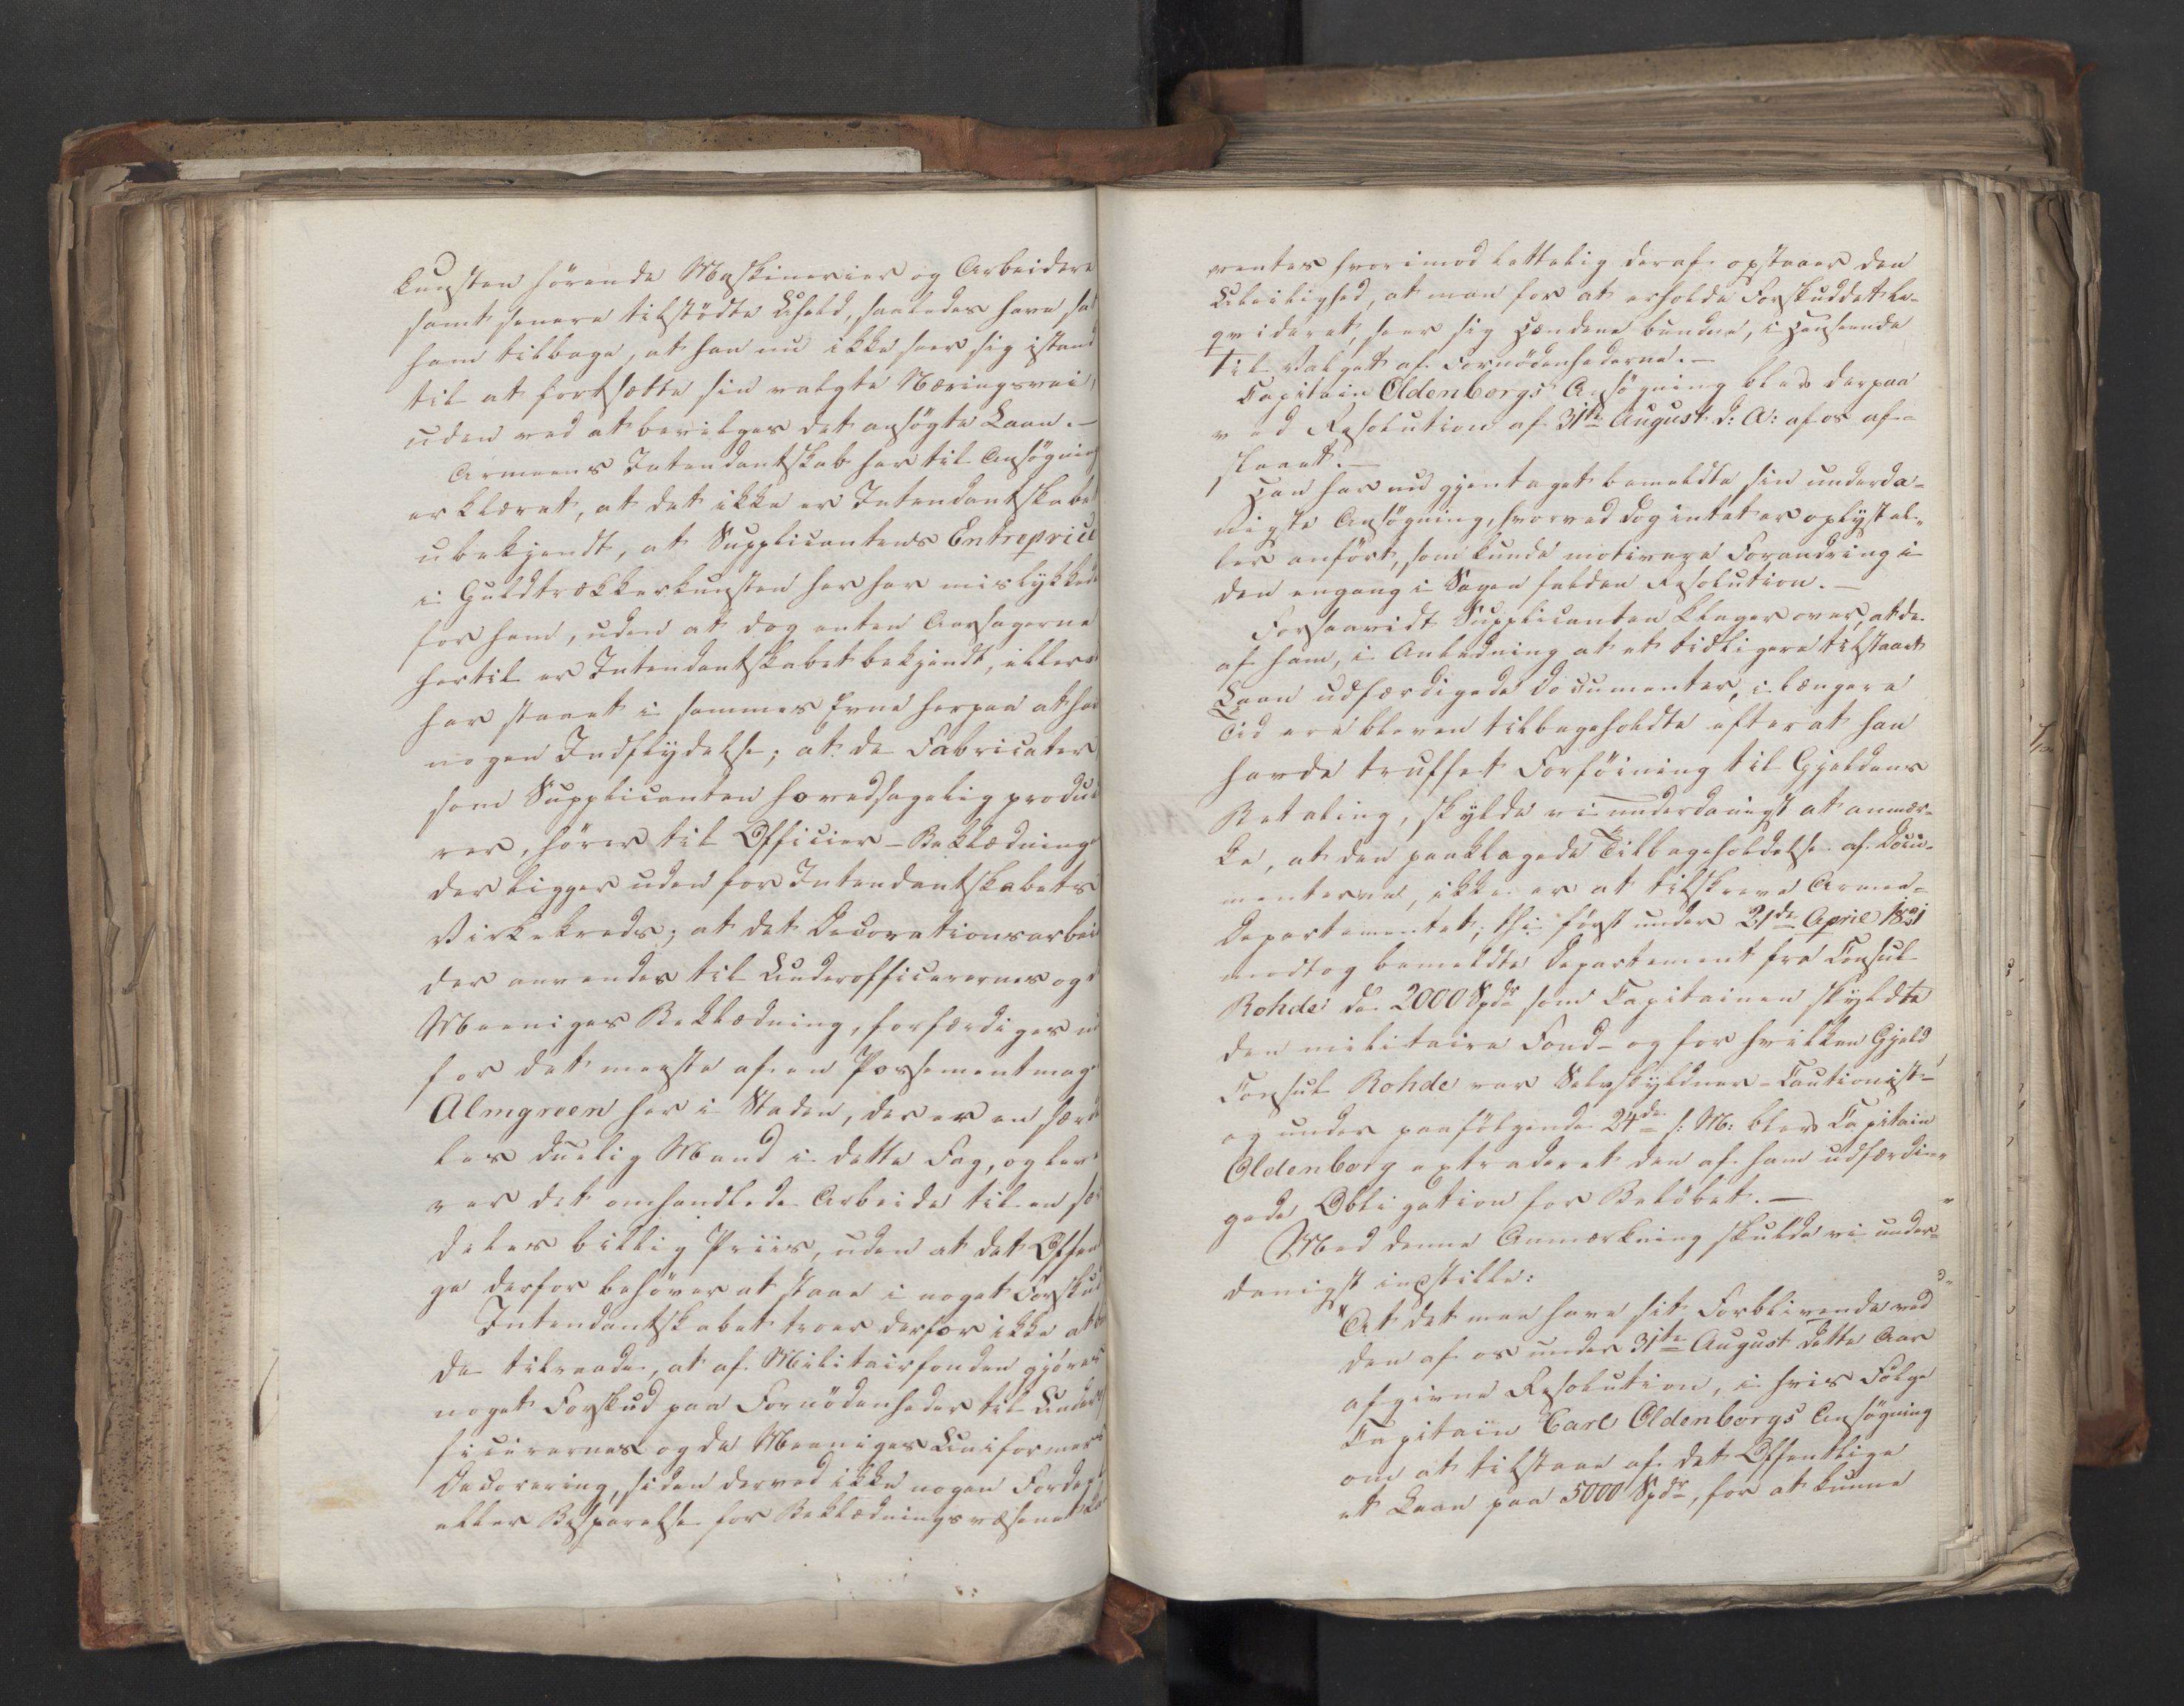 Kunsten hörende Maskinerier og Arbeidere
samt senere tilstödte Uheld, saaledes have sat
ham tilbage, at han nu ikke seer sig istand
til at fortsætte sin valgte Næringsvei,
uden ved at bevilges det ansögte Laan.—
Armeens Intendantskab har til Ansögning
erklæret, at det ikke er Intendantskabet
ubekjendt, at Supplicantens Entreprice
i Guldtrækkerkunsten her har mislykkedes
for ham, uden at dog enten Aarsagerne
hertil er Intendantskabet bekjendt, eller
har staaet i sammes Evne herpaa at have
nogen Indflydelse; at de Fabricater
som Supplicanten hovedsagelig produce
rer, hörer til Officier-Beklædning
der ligger uden for Intendantskabets
Virkekreds; at det Decorationsarbeide
der anvendes til Underofficerernes og
Meeniges Beklædning, forfærdiges nu
for det meeste af en Possementmager
Almgreen her i Staden, der er en særde
les duelig Mand i dette Fag, og leve
rer det omhandlede Arbeide til en sær
deles billig Priis, uden at det Offentli
ge derfor behöver at staae i noget Forskud
Intendantskabet troer derfor ikke at bur
de tilraade, at af Militairfonden gjöres
noget Forskud paa Fornödenheder til Underof
ficerernes og de Meeniges Uniformers
Decorering, siden derved ikke nogen Fordeel
eller Besparelse for Beklædningsvæsenet kan
ventes hvorimod lettelig deraf opstaaer den
Ubeilighed, at man for at erholde Forskuddet li-
qvideret, seer sig Hændene bundne, i Henseende
til Valget af Fornödenhederne.—
Capitain Oldenborgs Ansögning blev derpaa
ved Resolution af 31te August d: A: af os af-
slaaet.—
Han har nu gjentaget bemeldte sin underda-
nigste Ansögning, hvorved dog intet er oplyst el-
ler anfört, som kunde motivere Forandring i
den engang i Sagen faldne Resolution.—
Forsaavidt Supplicanten klager over, at de
af ham, i Anledning af et tidligere tilstaaet
Laan udfærdigede Documenter, i længere
Tid ere bleven tilbageholdte efter at han
havde truffet Forföining til Gjeldens
Betaling, skylde vi underdanigst at anmær-
ke, at den paaklagede Tilbageholdelse af Docu-
menterne, ikke er at tilskrive Armee-
Departementet; thi först under 21de April 1821
modtog bemeldte Departement fra Consul
Rohde de 2000 Spdr som Capitainen skyldte
den militaire Fond- og for hvilken Gjeld
Consul Rohde var Selvskyldner-Cautionist-
og under paafölgende 24de s: M: blev Capitain
Oldenborg extraderet den af ham udfærdi-
gede Obligation for Belöbet.—
Med denne Anmærkning skulde vi under-
danigst indstille:
"At det maa have sit Forblivende ved
den af os under 31te August dette Aar
afgivne Resolution, i hvis Fölge
Capitain Carl Oldenborgs Ansögning
om at tilstaaes af det Offentlige
et Laan paa 5000 Spdr, for at kunne